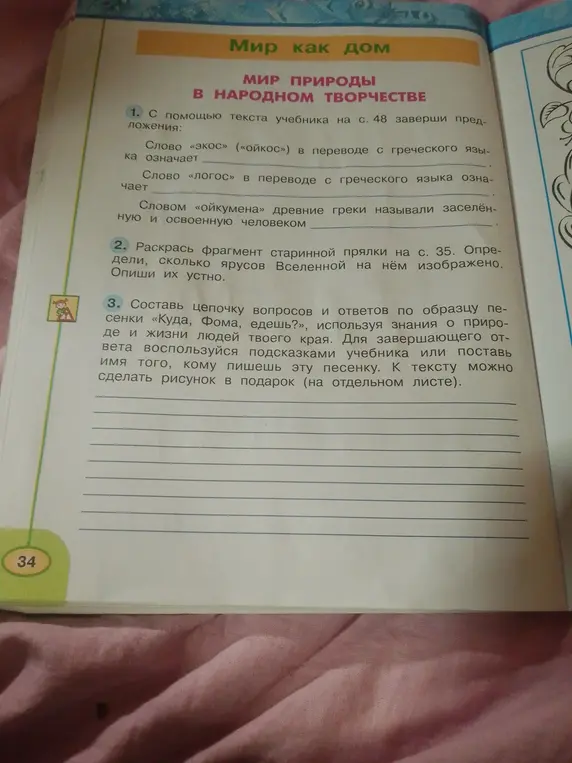 Мир как дом
МИР ПРИРОДЫ
В НАРОДНОМ ТВОРЧЕСТВЕ
1. С помощью текста учебника на с. 48 заверши пред-
ложения:
Слово «экос» («ойкос») в переводе с греческого язы-
ка означает ______ .
Слово «логос» в переводе с греческого языка озна-
чает ______ .
Словом «ойкумена» древние греки называли заселён-
ную и освоенную человеком ______ .
2. Раскрась фрагмент старинной прялки на с. 35. Опре-
дели, сколько ярусов Вселенной на нём изображено.
Опиши их устно.
3. Составь цепочку вопросов и ответов по образцу пе-
сенки «Куда, Фома, едешь?», используя знания о приро-
де и жизни людей твоего края. Для завершающего от-
вета воспользуйся подсказками учебника или поставь
имя того, кому пишешь эту песенку. К тексту можно
сделать рисунок в подарок (на отдельном листе).
34